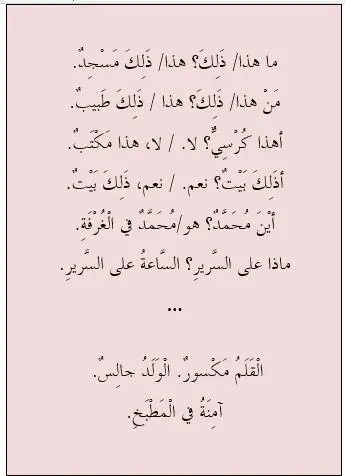 ما هذا/ ذَلِكَ؟ هذا/ ذَلِكَ مَسْجِدٌ.
مَنْ هذا/ ذَلِكَ؟ هذا / ذَلِكَ طَبيبٌ.
أهذا كُرْسِيٌّ؟ لا. / لا، هذا مَكْتَبٌ.
أذَلِكَ بَيْتٌ؟ نعم. / نعم، ذَلِكَ بَيْتٌ.
أيْنَ مُحَمَّدٌ؟ هو/مُحَمَّدٌ في الْغُرْفَةِ.
ماذا على السَّريرِ؟ السَّاعةُ على السَّريرِ.
...
الْقَلَمُ مَكْسورٌ. الْوَلَدُ جالِسٌ.
آمِنَةُ في الْمَطْبَخِ.